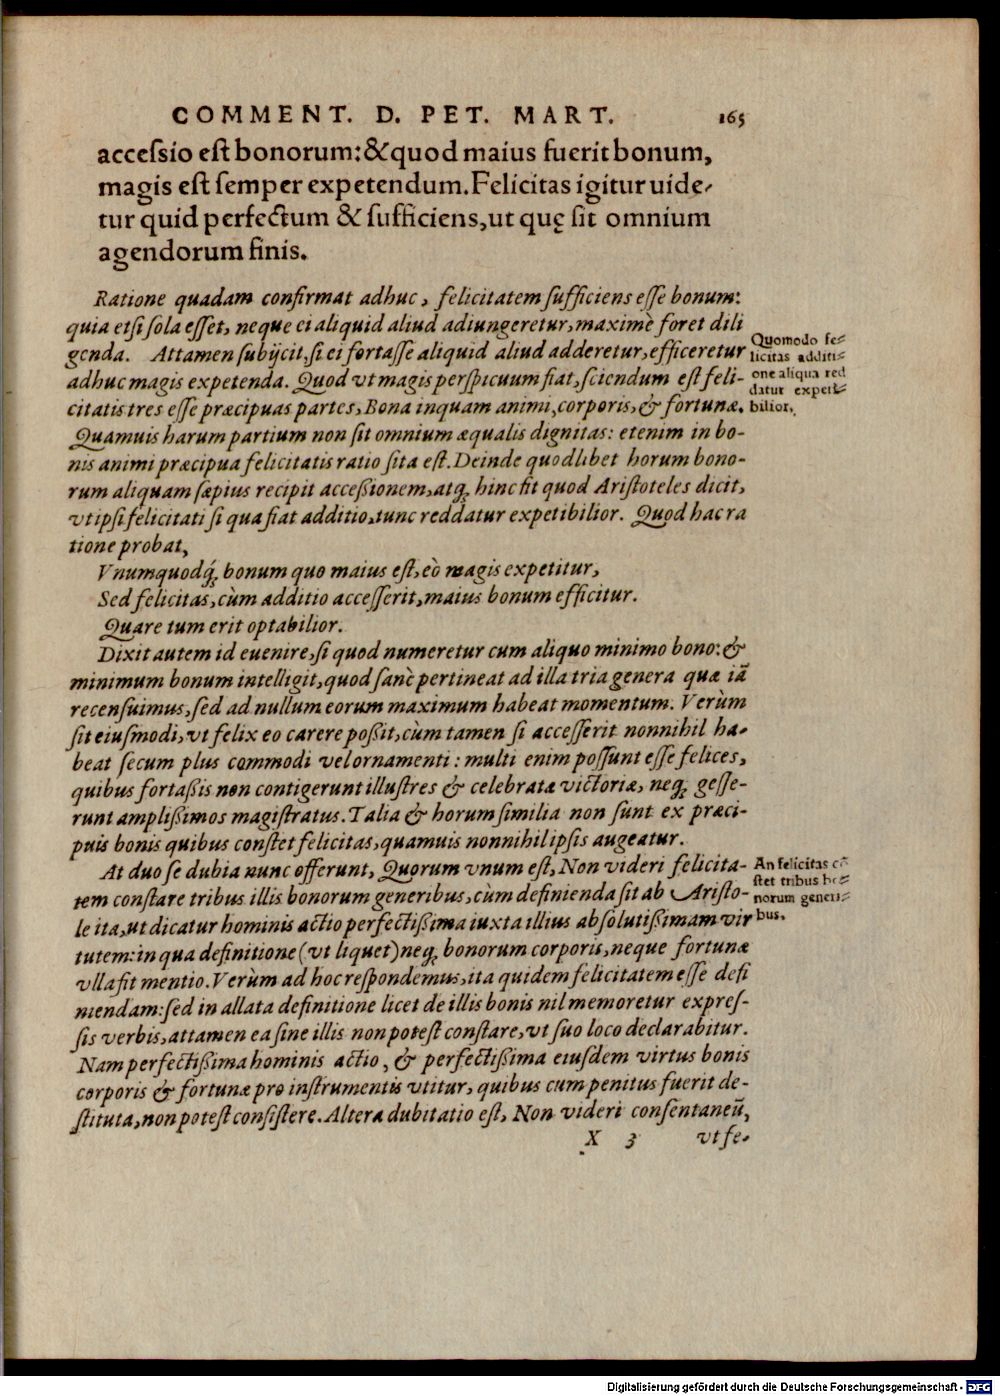 COMMENT. D. PET. MART. 165
acceſsio eſt bonorum: & quod maius fuerit bonum,
magis eſt ſemper expetendum. Felicitas igitur uide-
tur quid perfectum & ſufficiens, ut quę ſit omnium
agendorum finis.
Ratione quadam confirmat adhuc, felicitatem ſufficiens eſſe bonum:
quia etſi ſola eſſet, neque ei aliquid aliud adiungeretur, maximè foret dili
genda. Attamen ſubijcit, ſi ei fortaſſe aliquid aliud adderetur, efficeretur
adhuc magis expetenda. Quod vt magis perſpicuum fiat, ſciendum eſt feli-
citatis tres eſſe præcipuas partes, Bona inquam animi, corporis, & fortunæ.
Quamuis harum partium non ſit omnium æqualis dignitas: etenim in bo-
nis animi præcipua felicitatis ratio ſita eſt. Deinde quodlibet horum bono-
rum aliquam ſæpius recipit acceßionem, atq; hinc fit quod Ariſtoteles dicit,
vt ipſi felicitati ſi qua fiat additio, tunc reddatur expetibilior. Quod hac ra
tione probat,
Quomodo fe-
licitas additi-
one aliqua red
datur expeti-
bilior.
Vnumquodq; bonum quo maius eſt, eò magis expetitur,
Sed felicitas, cùm additio acceſſerit, maius bonum efficitur.
Quare tum erit optabilior.
Dixit autem id euenire, ſi quod numeretur cum aliquo minimo bono: &
minimum bonum intelligit, quod ſanè pertineat ad illa tria genera quæ iã
recenſuimus, ſed ad nullum eorum maximum habeat momentum. Verùm
ſit eiuſmodi, vt felix eo carere poßit, cùm tamen ſi acceſſerit nonnihil ha-
beat ſecum plus commodi vel ornamenti: multi enim poſſunt eſſe felices,
quibus fortaßis non contigerunt illuſtres & celebratæ victoriæ, neq; geſſe-
runt amplißimos magiſtratus. Talia & horum ſimilia non ſunt ex præci-
puis bonis quibus conſtet felicitas, quamuis nonnihil ipſis augeatur.
At duo ſe dubia nunc offerunt, Quorum vnum eſt, Non videri felicita-
tem conſtare tribus illis bonorum generibus, cùm definienda ſit ab Ariſto-
le ita, ut dicatur hominis actio perfectißima iuxta illius abſolutißimam vir
tutem: in qua definitione (vt liquet) neq; bonorum corporis, neque fortunæ
vlla fit mentio. Verùm ad hoc reſpondemus, ita quidem felicitatem eſſe defi
niendam: ſed in allata definitione licet de illis bonis nil memoretur expreſ-
ſis verbis, attamen ea ſine illis non poteſt conſtare, vt ſuo loco declarabitur.
Nam perfectißima hominis actio, & perfectißima eiuſdem virtus bonis
corporis & fortunæ pro inſtrumentis vtitur, quibus cum penitus fuerit de-
ſtituta, non poteſt conſiſtere. Altera dubitatio eſt, Non videri conſentaneũ,
An felicitas cõ
ſtet tribus bo-
norum generi-
bus.
X 3 vt fe-
Digitalisierung gefördert durch die Deutsche Forschungsgemeinschaft - DFG